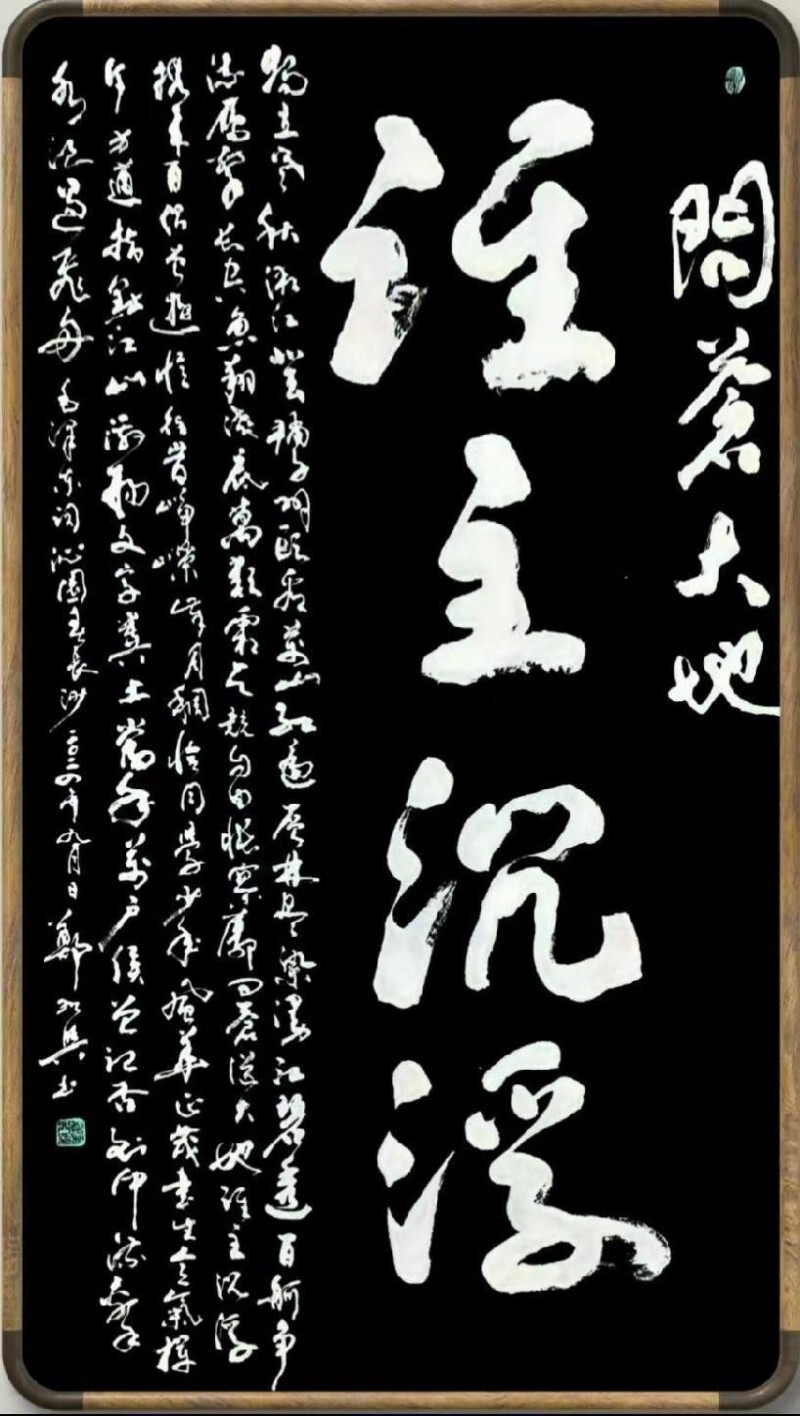 問蒼大地
誰主沉浮
獨立寒秋湘江北去橘子洲頭看萬山紅遍層林盡染漫江碧透百舸爭
流鷹擊長空魚翔淺底萬類霜天競自由悵寥廓問蒼茫大地誰主沉浮
攜來百侶曾遊憶往昔崢嶸歲月稠恰同學少年風華正茂書生意氣揮
斥方遒指點江山激揚文字糞土當年萬戶侯曾記否到中流擊
水浪遏飛舟 毛澤東詞沁園春長沙 二〇二四年九月日 鄭興書